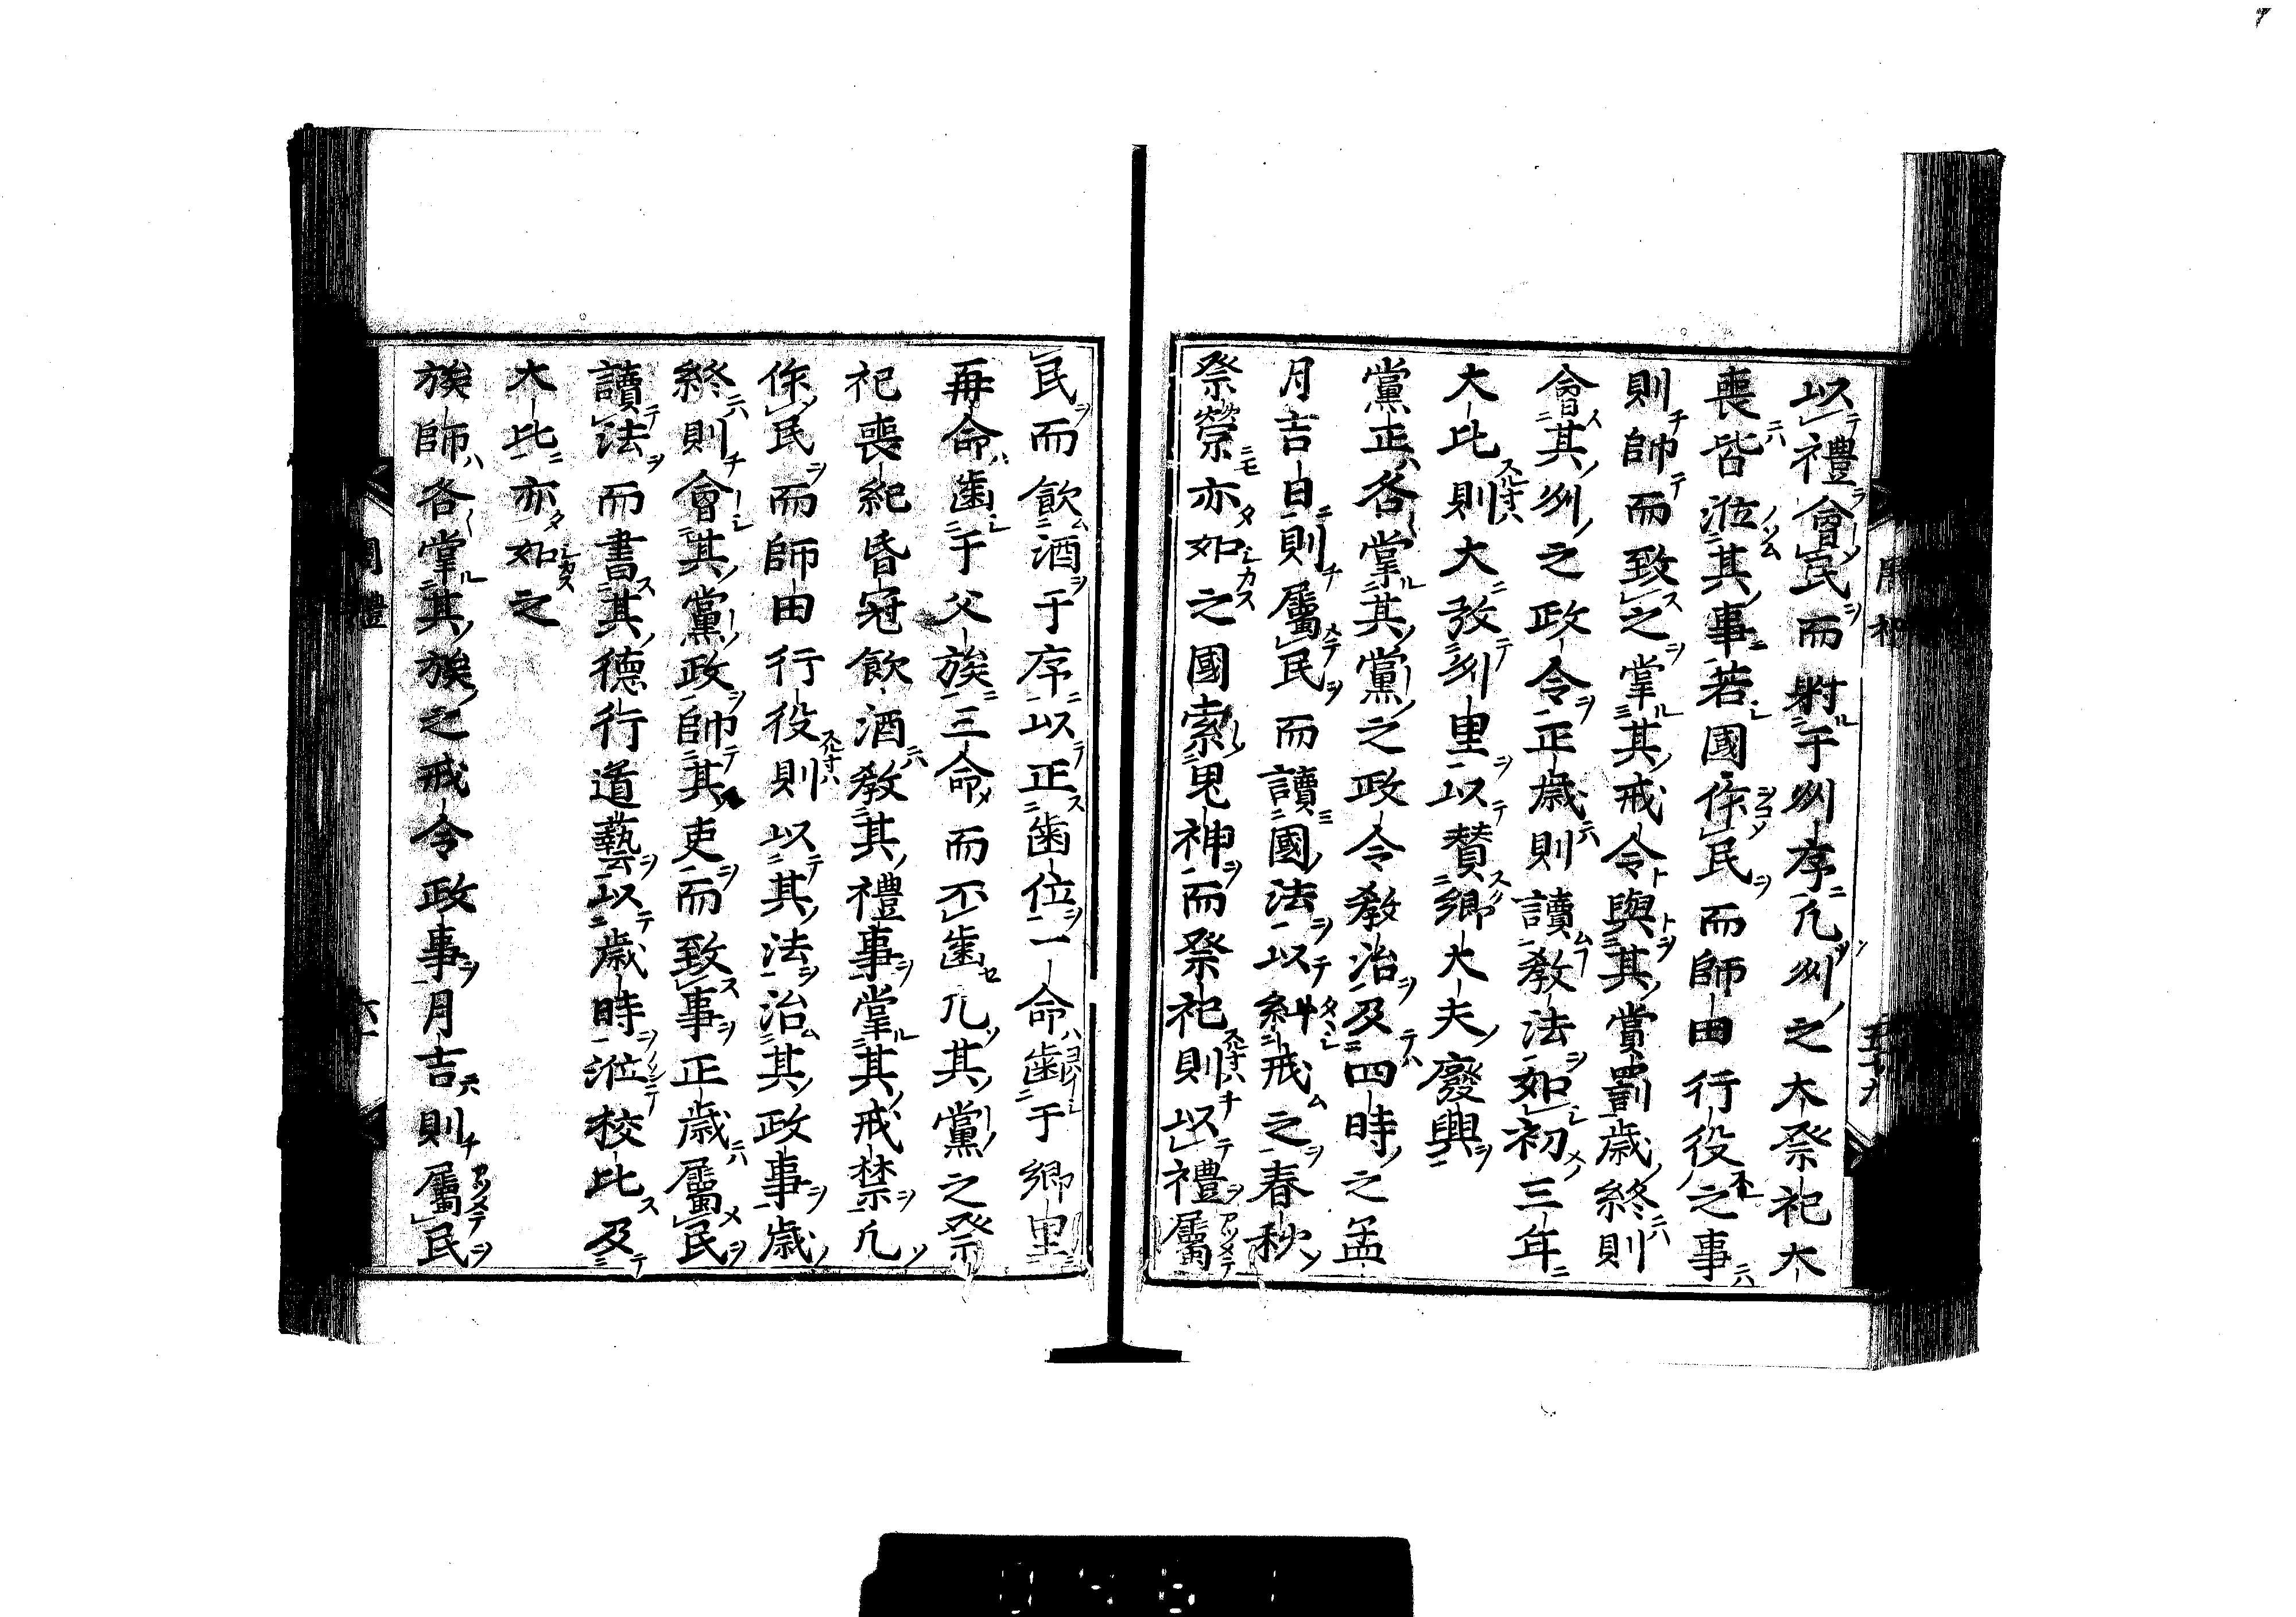 以禮會民而射于州序凡州之大祭祀大
喪皆涖其事若國作民而師田行役之事
則帥而致之掌其戒令與其賞罰歲終則
會其州之政令正歲則讀教法如初三年
大比則大攷州里以贊鄉大夫廢興
黨正各掌其黨之政令教治及四時之孟
月吉日則屬民而讀國法以糾戒之春秋
祭禜亦如之國索鬼神而祭祀則以禮屬
民而飲酒于序以正齒位一命齒于鄉里
再命齒于父族三命而不齒凡其黨之祭
祀喪紀昏冠飲酒教其禮事掌其戒禁凡
作民而師田行役則以其法治其政事歲
終則會其黨政帥其吏而致事正歲屬民
讀法而書其德行道藝以歲時涖校比及
大比亦如之
族師各掌其族之戒令政事月吉則屬民